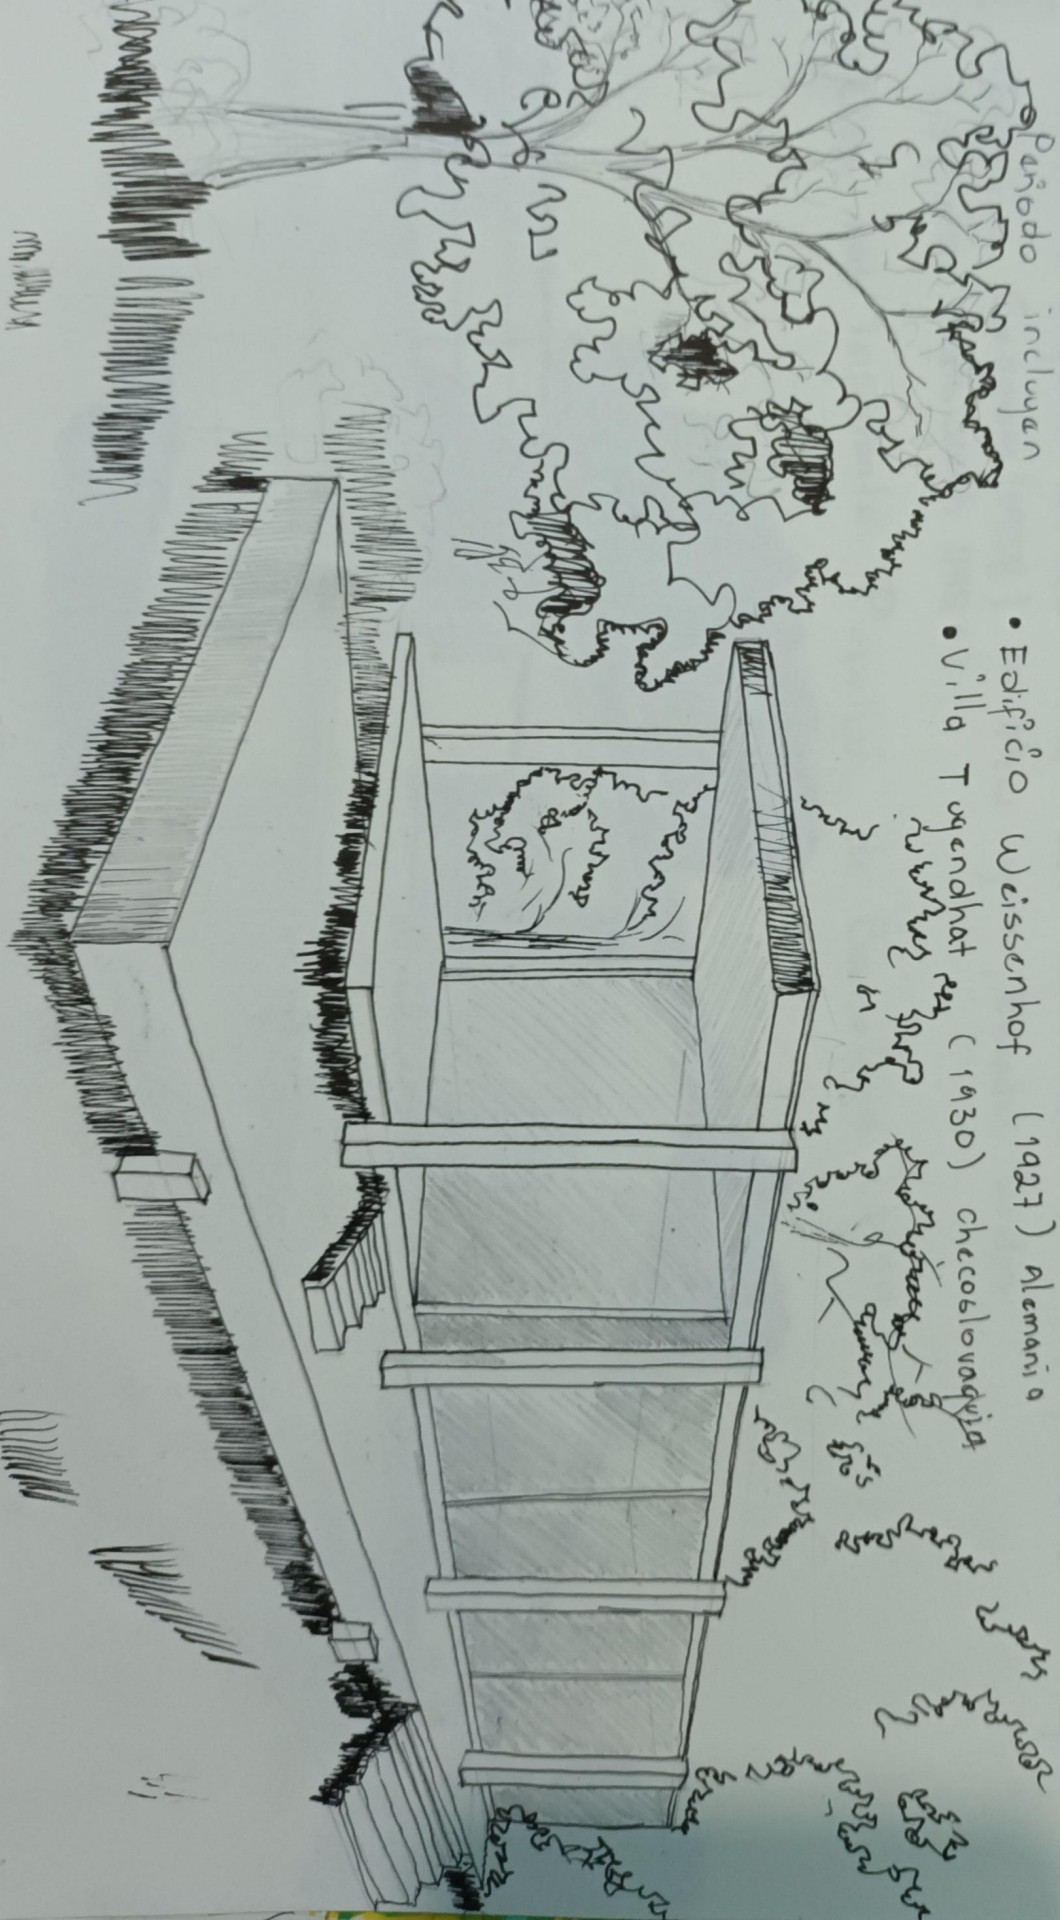 Periodo incluyen
• Edificio Weissenhof (1927) Alemania
• Villa Tugendhat (1930) checoslovaquia